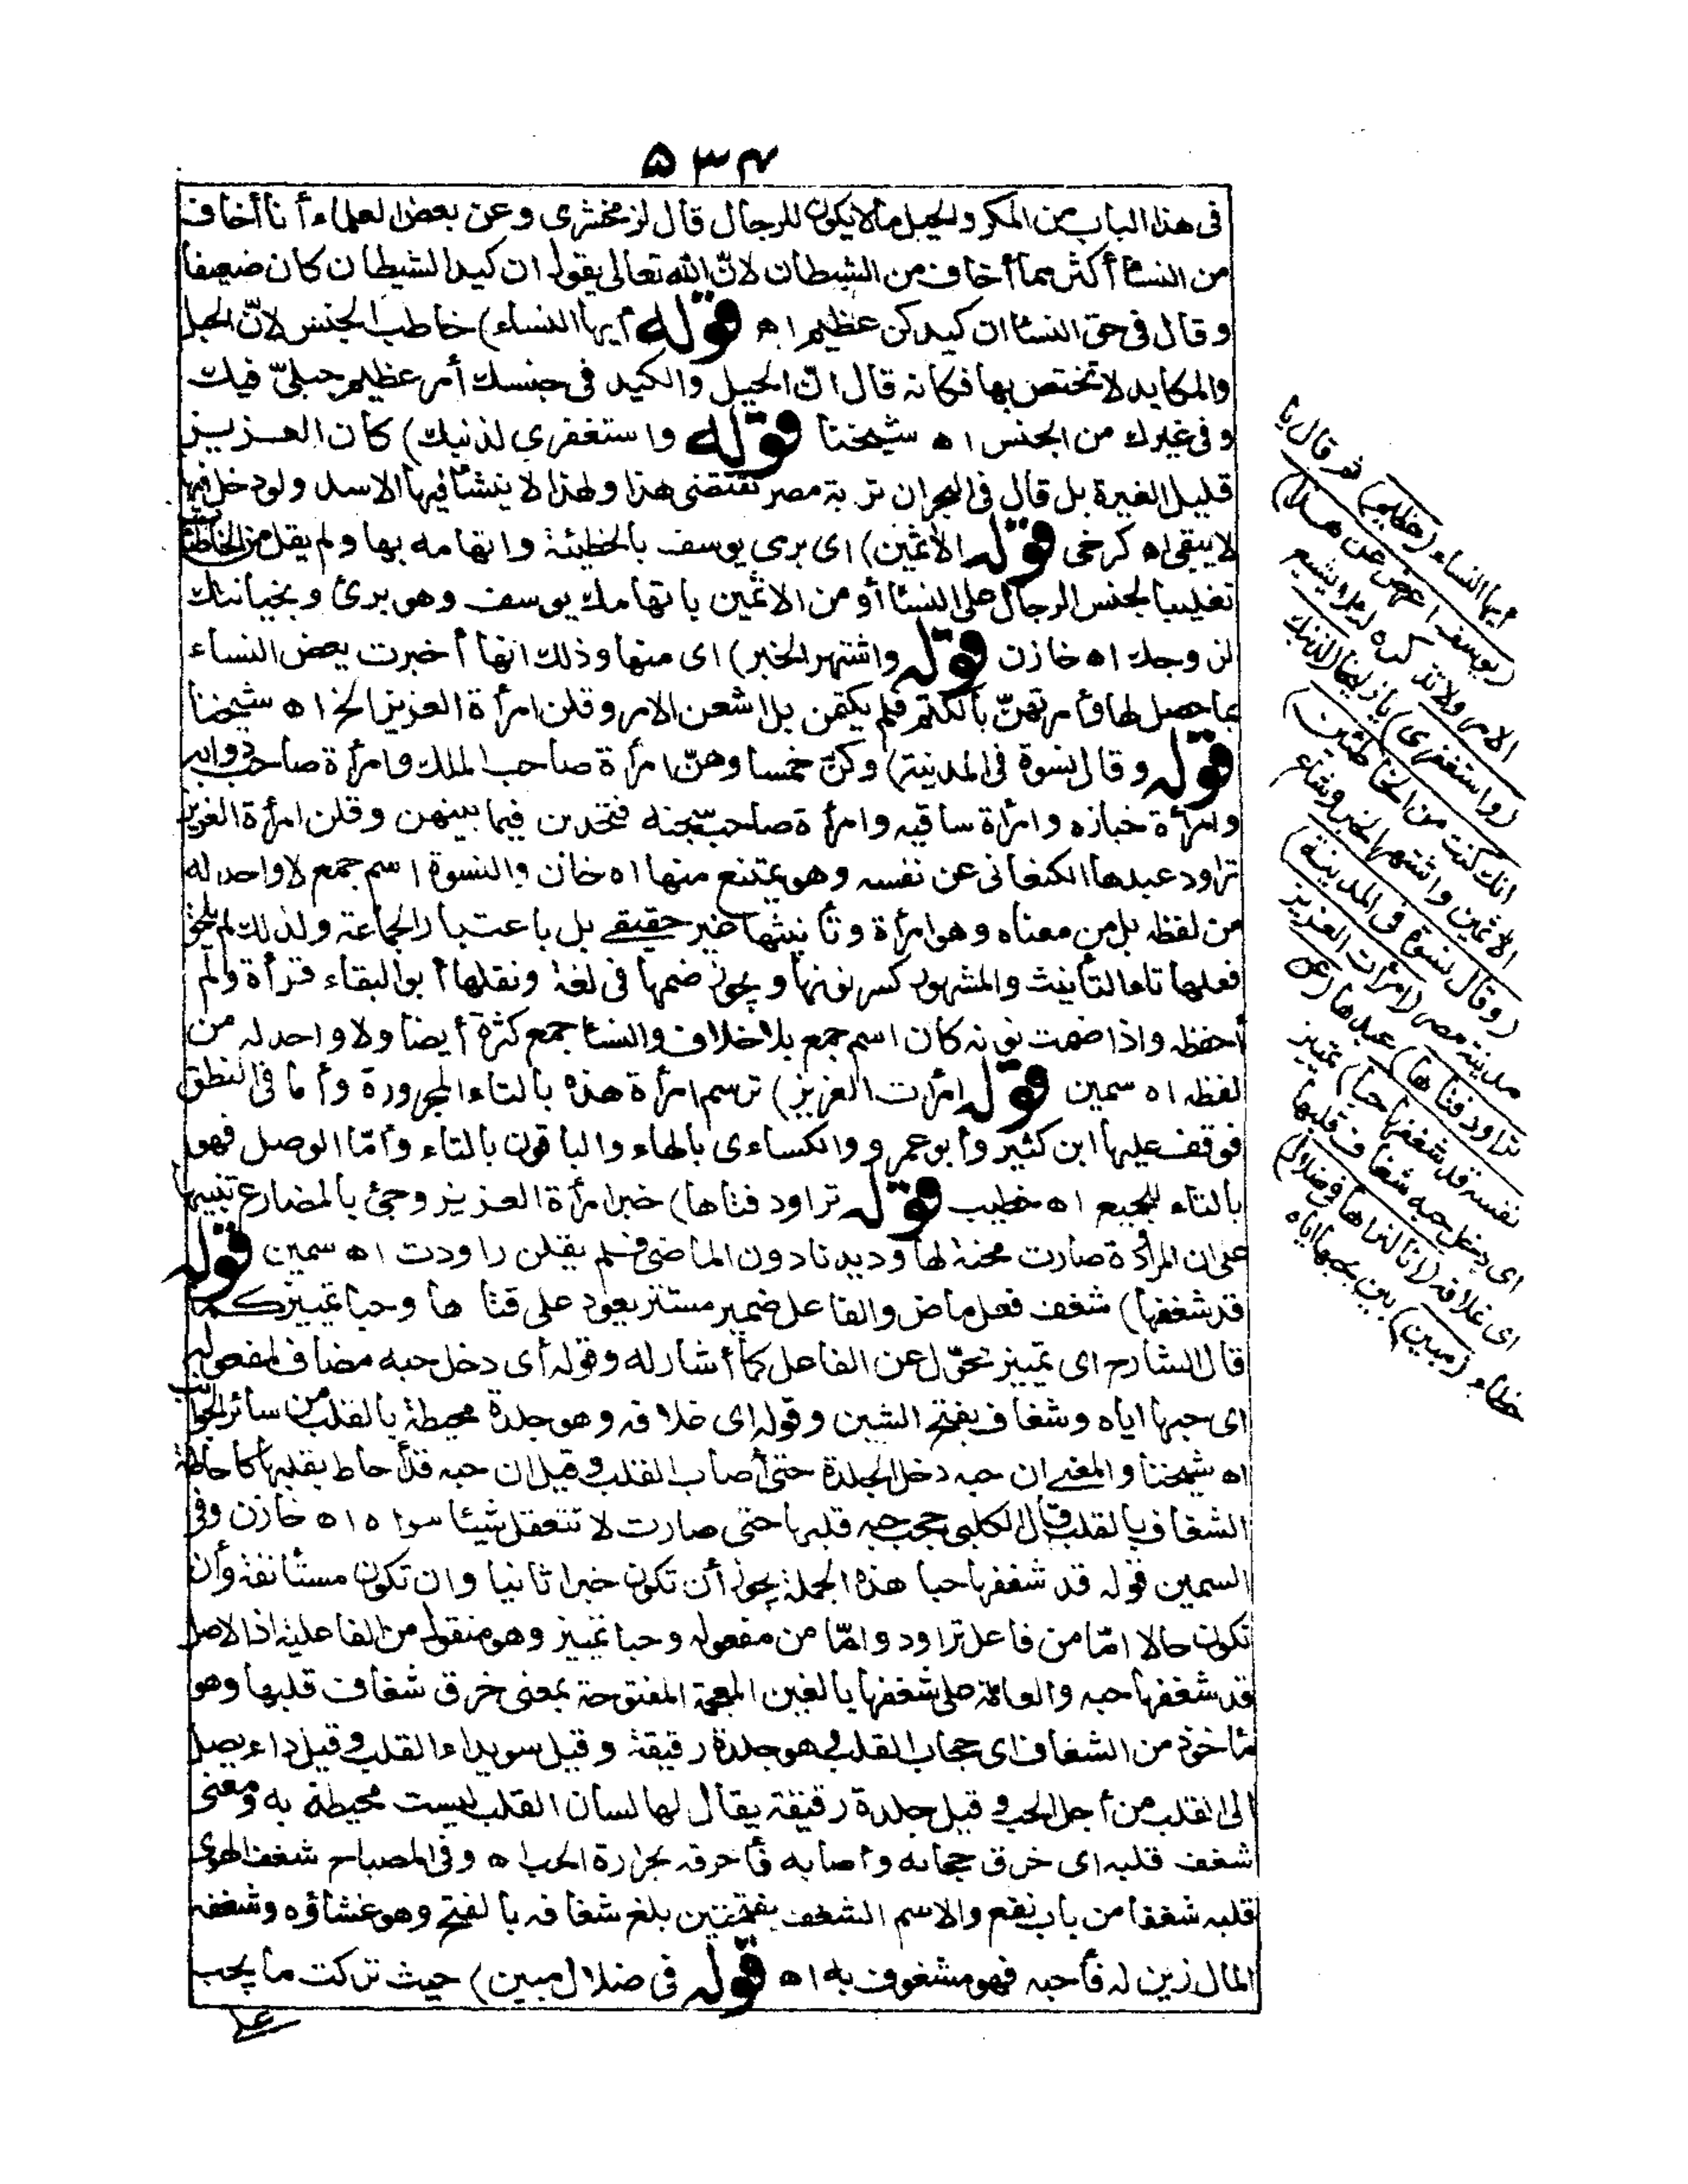 ۵۳۴
فى هذا الباب من المكر والحيل مالا يكون للرجال قال الزمخشرى وعن بعض العلماء أنا أخاف
من النساء أكثر مما أخاف من الشيطان لانّ الله تعالى يقول ان كيد الشيطان كان ضعيفا
وقال فى حق النساء ان كيدكن عظيم اه قوله أيها النساء) خاطب الجنس لانّ الحيل
والمكايد لا تختص بها فكانه قال انّ الحيل والكيد فى جنسك أمر عظيم جبلىّ فيك
وفى غيرك من الجنس اه شيخنا قوله واستغفرى لذنبك) كان العزيز
قليل الغيرة بل قال فى البحر ان تربة مصر تقتضى هذا ولهذا لا ينشأ فيها الاسد ولو دخل فيها
لا يبقى اه كرخى قوله الآثمين) اى برمى يوسف بالخطيئة واتهامه بها ولم يقل من الخاطئات
تغليبا لجنس الرجال على النساء أو من الآثمين باتهامك يوسف وهو برئ وبخيانتك
لزوجك اه خازن قوله واشتهر الخبر) اى منها وذلك انها أخبرت بعض النساء
بما حصل لها وأمرتهنّ بالكتم فلم يكتمن بل اشعن الامر وقلن امرأة العزيز الخ اه شيخنا
قوله وقال نسوة فى المدينة) وكنّ خمسا وهنّ امرأة صاحب الملك وامرأة صاحب دوابه
وامرأة خبازه وامرأة ساقيه وامرأة صاحب سجنه فتحدثن فيما بينهن وقلن امرأة العزيز
تراود عبدها الكنعانى عن نفسه وهو يمتنع منها اه خازن والنسوة اسم جمع لا واحد له
من لفظه بل من معناه وهو امرأة وتأنيثها غير حقيقى بل باعتبار الجماعة ولذلك لم يلحق
فعلها تاء التأنيث والمشهور كسر نونها ويجوز ضمها فى لغة ونقلها أبو البقاء قرأة ولم
أحفظه واذا ضمت نونه كان اسم جمع بلا خلاف والنساء جمع كثرة أيضا ولا واحد له من
لفظه اه سمين قوله امرأت العزيز) ترسم امرأة هذه بالتاء المجرورة وأما فى النطق
فوقف عليها ابن كثير وأبو عمرو والكساءى بالهاء والباقون بالتاء وأمّا الوصل فهو
بالتاء للجميع اه خطيب قوله تراود فتاها) خبر امرأة العزيز وجئ بالمضارع تنبيها
على ان المرأودة صارت محنة لها وديدنا دون الماضى فلم يقلن راودت اه سمين قوله
قد شغفها) شغف فعل ماض والفاعل ضمير مستتر يعود على فتاها وحبا تمييز كما
قال الشارح اى تمييز محوّل عن الفاعل كما أشار له وقوله أى دخل حبه مضاف لمفعوله
اى حبها اياه وشغاف بفتح الشين وقوله اى غلافه وهو جلدة محيطة بالقلب من سائر الجوانب
اه شيخنا والمعنى ان حبه دخل الجلدة حتى أصاب القلب وقيل ان حبه قد أحاط بقلبها كاحاطة
الشغاف بالقلب قال الكلبى حجب حبه قلبها حتى صارت لا تتعقل شيئا سواه اه خازن وفى
السمين قوله قد شغفها حبا هذه الجملة يجوز أن تكون خبرا ثانيا وان تكون مستأنفة وأن
تكون حالا امّا من فاعل تراود وامّا من مفعوله وحبا تمييز وهو منقول من الفاعلية اذ الاصل
قد شغفها حبه والعامّة على شغفها بالغين المعجمة المفتوحة بمعنى خرق شغاف قلبها وهو
مأخوذ من الشغاف اى حجاب القلب وهو جلدة رقيقة وقيل سويداء القلب وقيل داء يصل
الى القلب من أجل الحب وقيل جلدة رقيقة يقال لها لسان القلب ليست محيطة به ومعنى
شغف قلبه اى خرق حجابه وأصابه فأحرقه بحرارة الحب اه وفى المصباح شغف الهوى
قلبه شغفا من باب نفع والاسم الشغف بفتحتين بلغ شغافه بالفتح وهو غشاؤه وشغفه
المال زين له فأحبه فهو مشغوف به اه قوله فى ضلال مبين) حيث تركت ما يجب
ايها النساء (عظيم) ثم قال يا
(يوسف اعرض عن هذا)
الامر ولا تذكره لئلا يشيع
(واستغفرى) يا زليخا (لذنبك
انك كنت من الخاطئين)
الآثمين واشتهر الخبر وشاع
(وقال نسوة فى المدينة)
مدينة مصر (امرأت العزيز
تراود فتاها) عبدها (عن
نفسه قد شغفها حبا) تمييز
اى دخل حبه شغاف قلبها
اى غلافه (انا لنراها فى ضلال)
خطاء (مبين) بين بحبها اياه